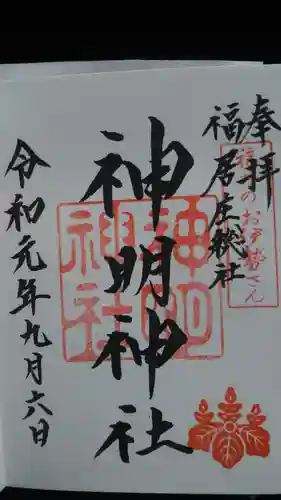 奉拝
福居庄総社
福井のお伊勢さん
神明神社
神明神社
令和元年九月六日